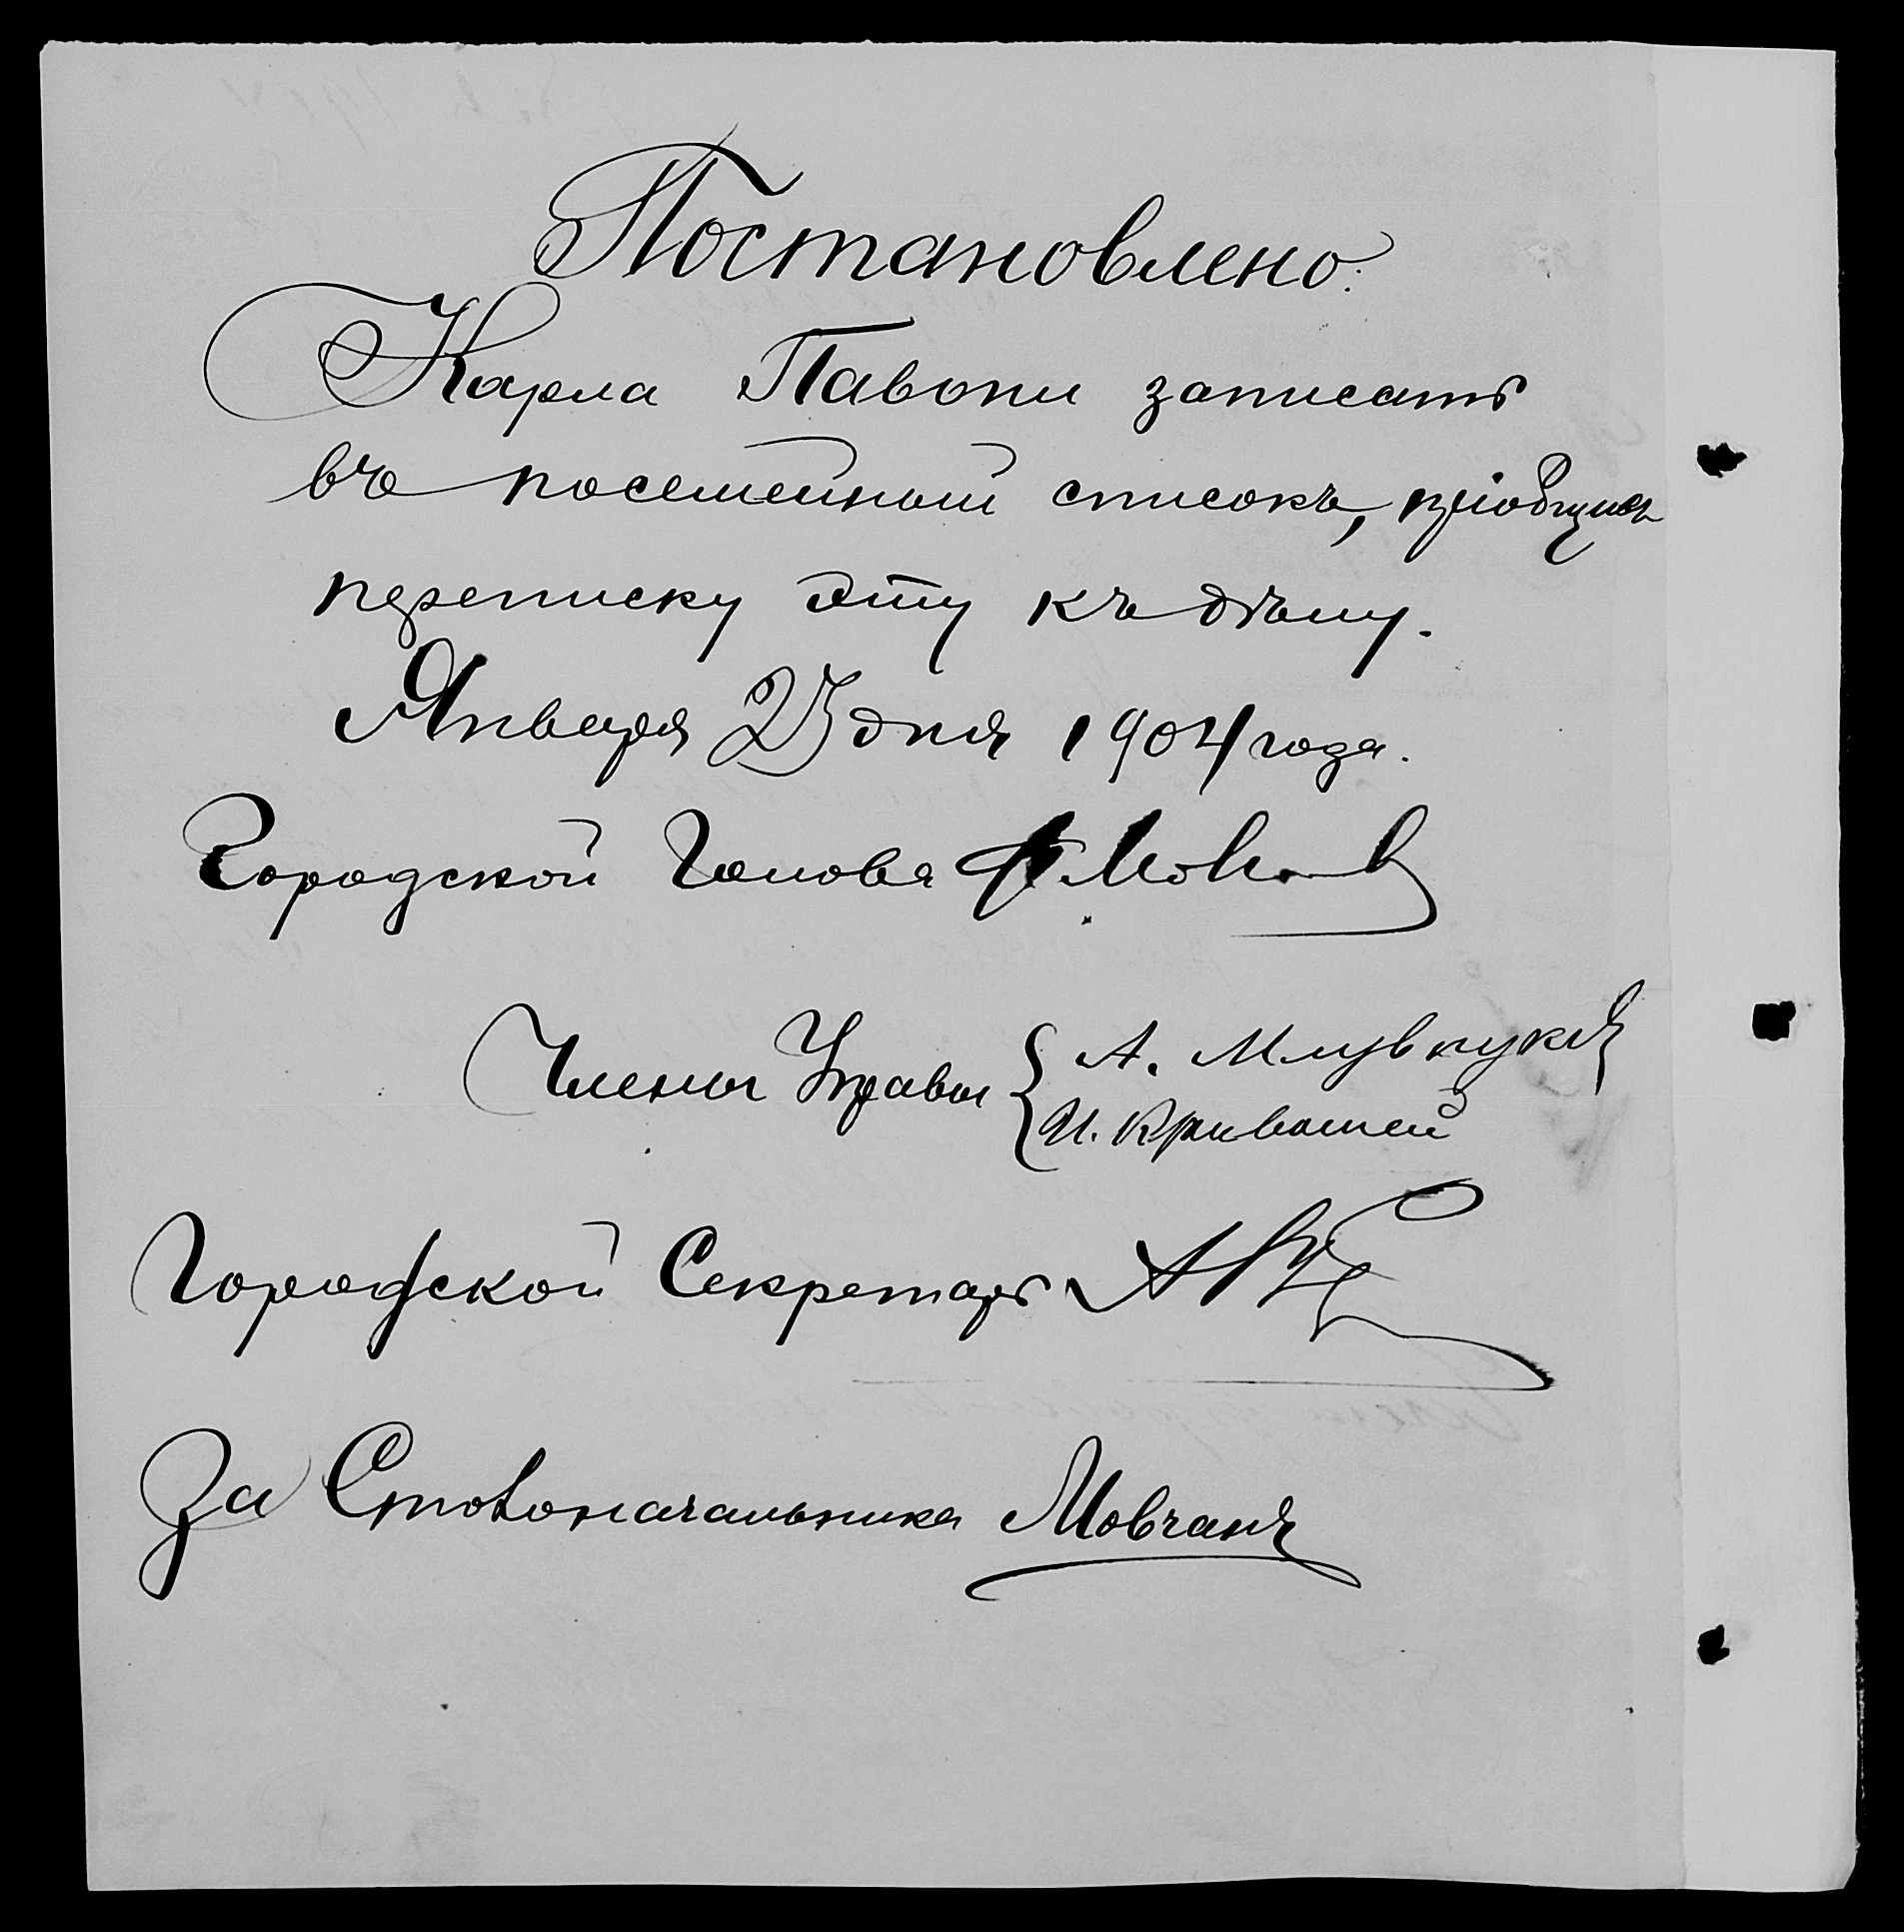 Постановлено:
Карла Павони записать
въ посемейный списокъ, пріобщивъ
переписку эту къ дѣлу.
Января 25 дня 1904 года.
Городской Голова
Члены Управы { А.
И. Кривошей
Городской Секретарь
За Столоначальника Мовчанъ